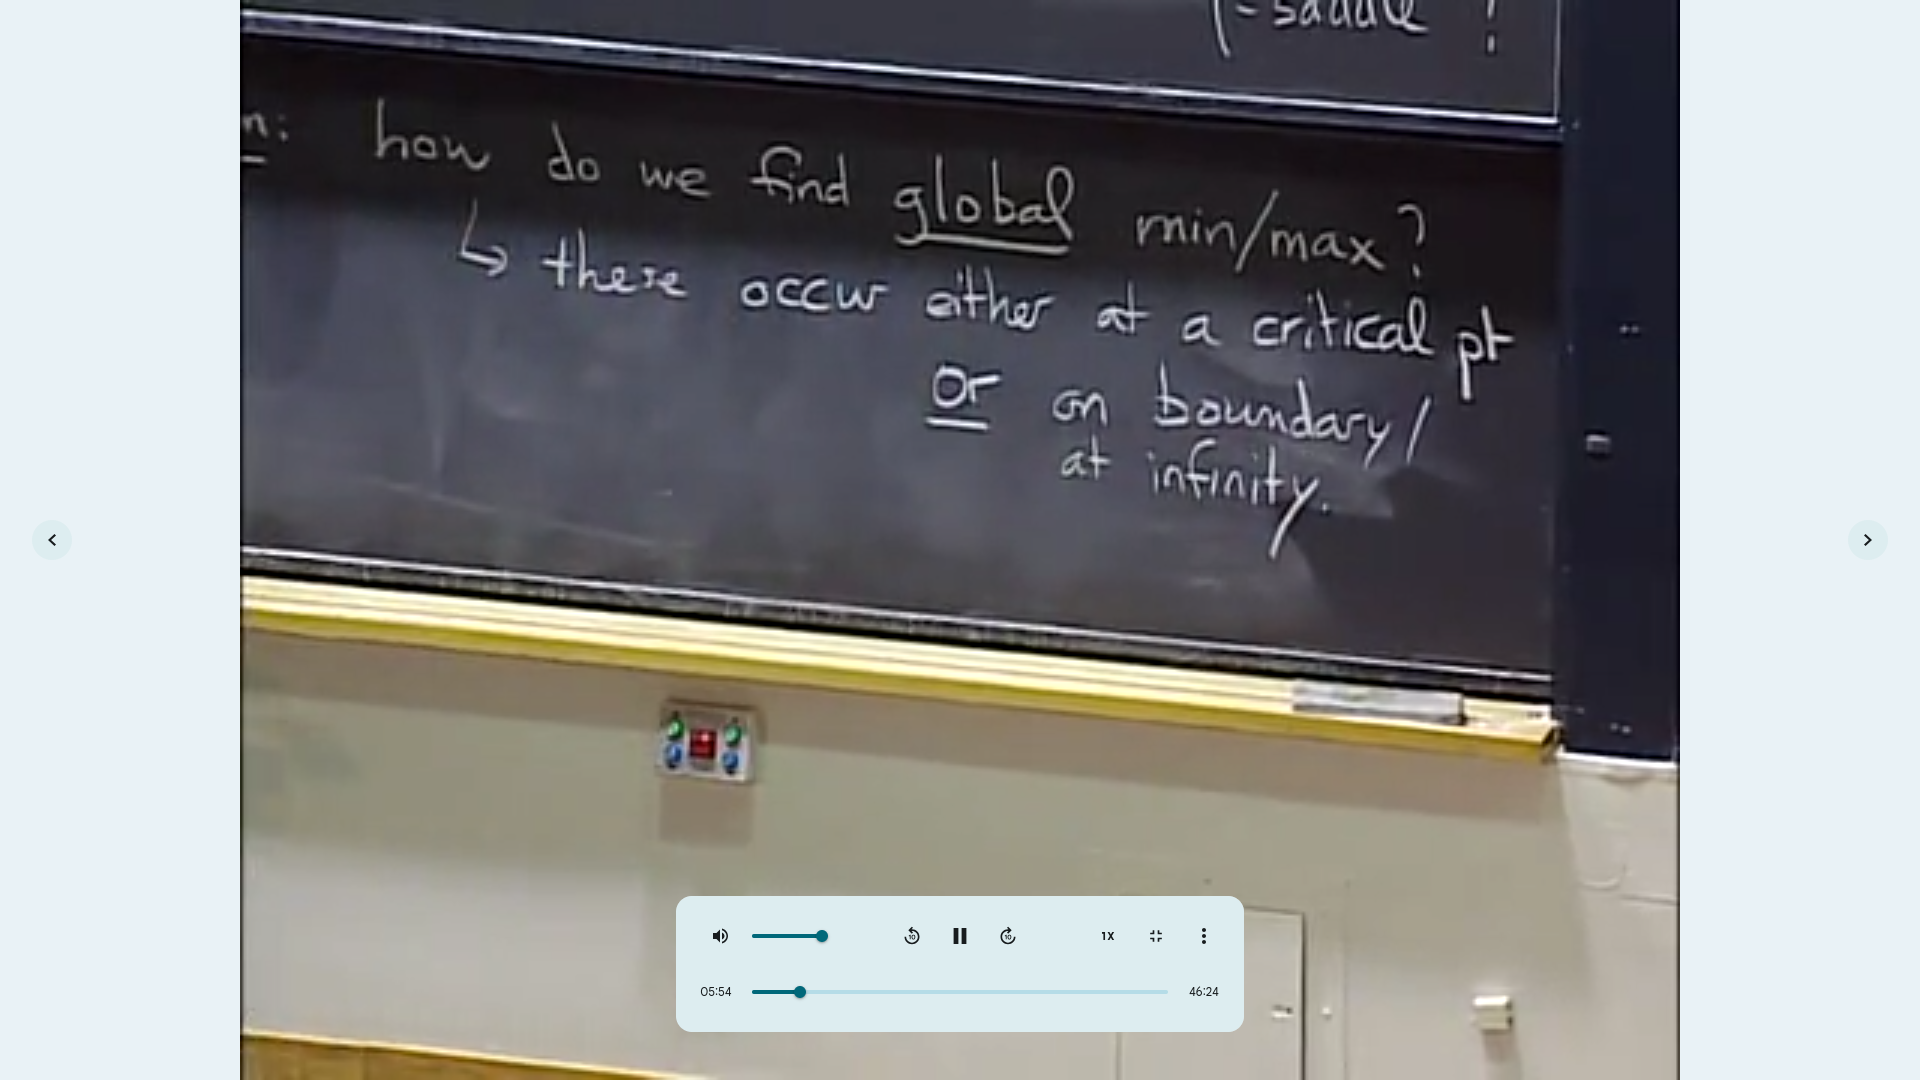 - saddle ?
n: how do we find global min/max?
↳ these occur either at a critical pt
or on boundary/
at infinity.
10
10
1X
05:54
46:24